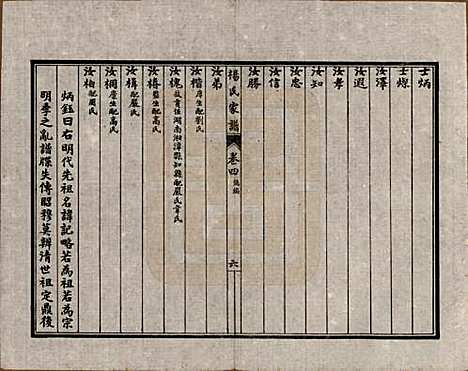 士炳
士煥
汝澤
汝遐
汝孝
汝知
汝忠
汝信
汝勝
楊氏家譜 卷四 六
汝弟
汝楷 庠生配劉氏
汝槐 拔貢任湖南湘潭縣知縣配嚴氏韋氏
汝樁 監生配高氏
汝楫 配嚴氏
汝桐 庠生配高氏
汝柏 配周氏
炳鈺曰右明代先祖名諱記略若為祖若為宗
明季之亂譜牒失傳昭穆莫辨清世祖定鼎後